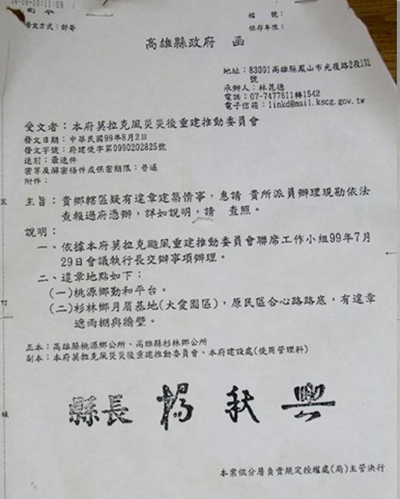 發文方式：郵寄
檔　號：
保存年限：
高雄縣政府　函
地址：83001高雄縣鳳山市光復路2段132
號
承辦人：林昆德
電話：07-7477611轉1542
電子信箱：linkd@mail.kscg.gov.tw
受文者：本府莫拉克風災災後重建推動委員會
發文日期：中華民國99年8月2日
發文字號：府建使字第0990202825號
速別：最速件
密等及解密條件或保密期限：普通
附件：
主旨：貴鄉轄區疑有違章建築情事，惠請 貴所派員辦理現勘依法
查報過府憑辦，詳如說明，請　查照。
說明：
一、依據本府莫拉克颱風重建推動委員會聯席工作小組99年7月
29日會議執行長交辦事項辦理。
二、違章地點如下：
(一)桃源鄉勤和平台。
(二)杉林鄉月眉基地(大愛園區)，原民區合心路路底，有違章
遮雨棚與牆壁。
正本：高雄縣桃源鄉公所、高雄縣杉林鄉公所
副本：本府莫拉克風災災後重建推動委員會、本府建設處(使用管理科)
縣長 楊秋興
本案依分層負責規定授權處(局)主管決行